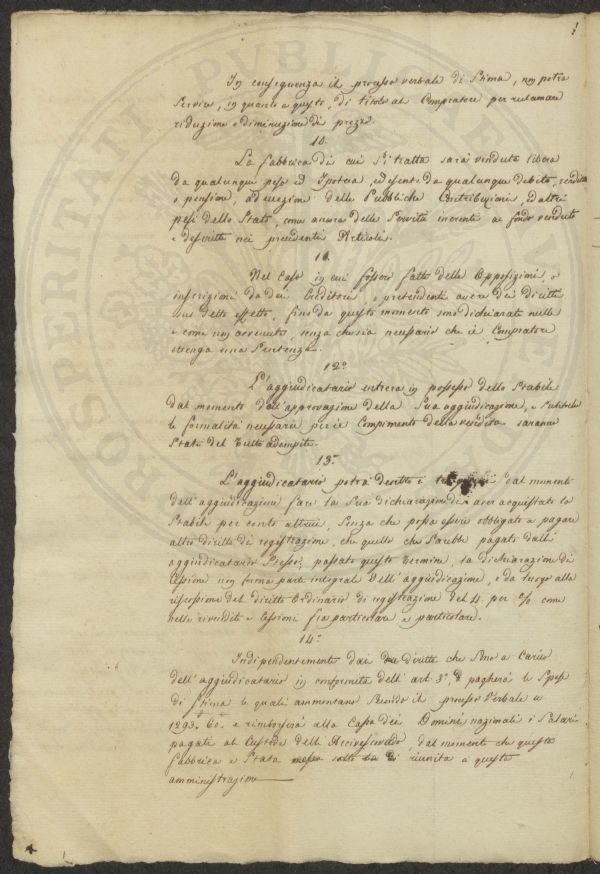 In conseguenza il processo verbale di Stima, non potrà
Servire, in quanto a questo, di titolo al Compratore per reclamare
riduzione o diminuzione di prezzo.
10.
La fabbrica di cui Si tratta sarà venduta libera
da qualunque peso ed Ipoteca, ed esente da qualunque debito, rendita
o pensione, ad eccezione delle Pubbliche Contribuzioni, ed altri
pesi dello Stato, come ancora delle Servitù inerenti al fondo venduto
e descritte nei precedenti Articoli.
11.
Nel Caso in cui fossero fatte delle Opposizioni, o
inscrizioni da dei Creditori, o pretendenti avere dei diritti
sul detto effetto, fino da questo momento sono dichiarate nulle
e come non avvenute, senza che sia necessario che il Compratore
ottenga una Sentenza.
12.º
L'aggiudicatario entrerà in possesso dello Stabile
dal momento dell'approvazione della Sua aggiudicazione, e tutte
le formalità necessarie per il Compimento della vendita saranno
State del tutto adempite.
13.º
L'aggiudicatario potrà dentro i dal momento
dell'aggiudicazione fare la Sua dichiarazione di aver acquistato lo
Stabile per conto altrui, Senza che possa essere obbligato a pagare
altro diritto di registrazione, che quello che Sarebbe pagato dall'
aggiudicatario Stesso; passato questo termine, la dichiarazione di
Cessione non forma parte integrale dell'aggiudicazione, e dà luogo alla
riscossione del diritto Ordinario di registrazione del 4. per % come
nelle rivendite e Cessioni fra particolare e particolare.
14.º
Indipendentemente dai diritti che Sono a Carico
dell'aggiudicatario in conformità dell'art. 3.º, pagherà le Spese
di Stima le quali ammontano Secondo il processo Verbale a
1293. 60. e rimborserà alla Cassa dei Domini nazionali i Salari
pagati al Custode dell'Arcivescovado, dal momento che questa
fabbrica è Stata riunita a questa
amministrazione